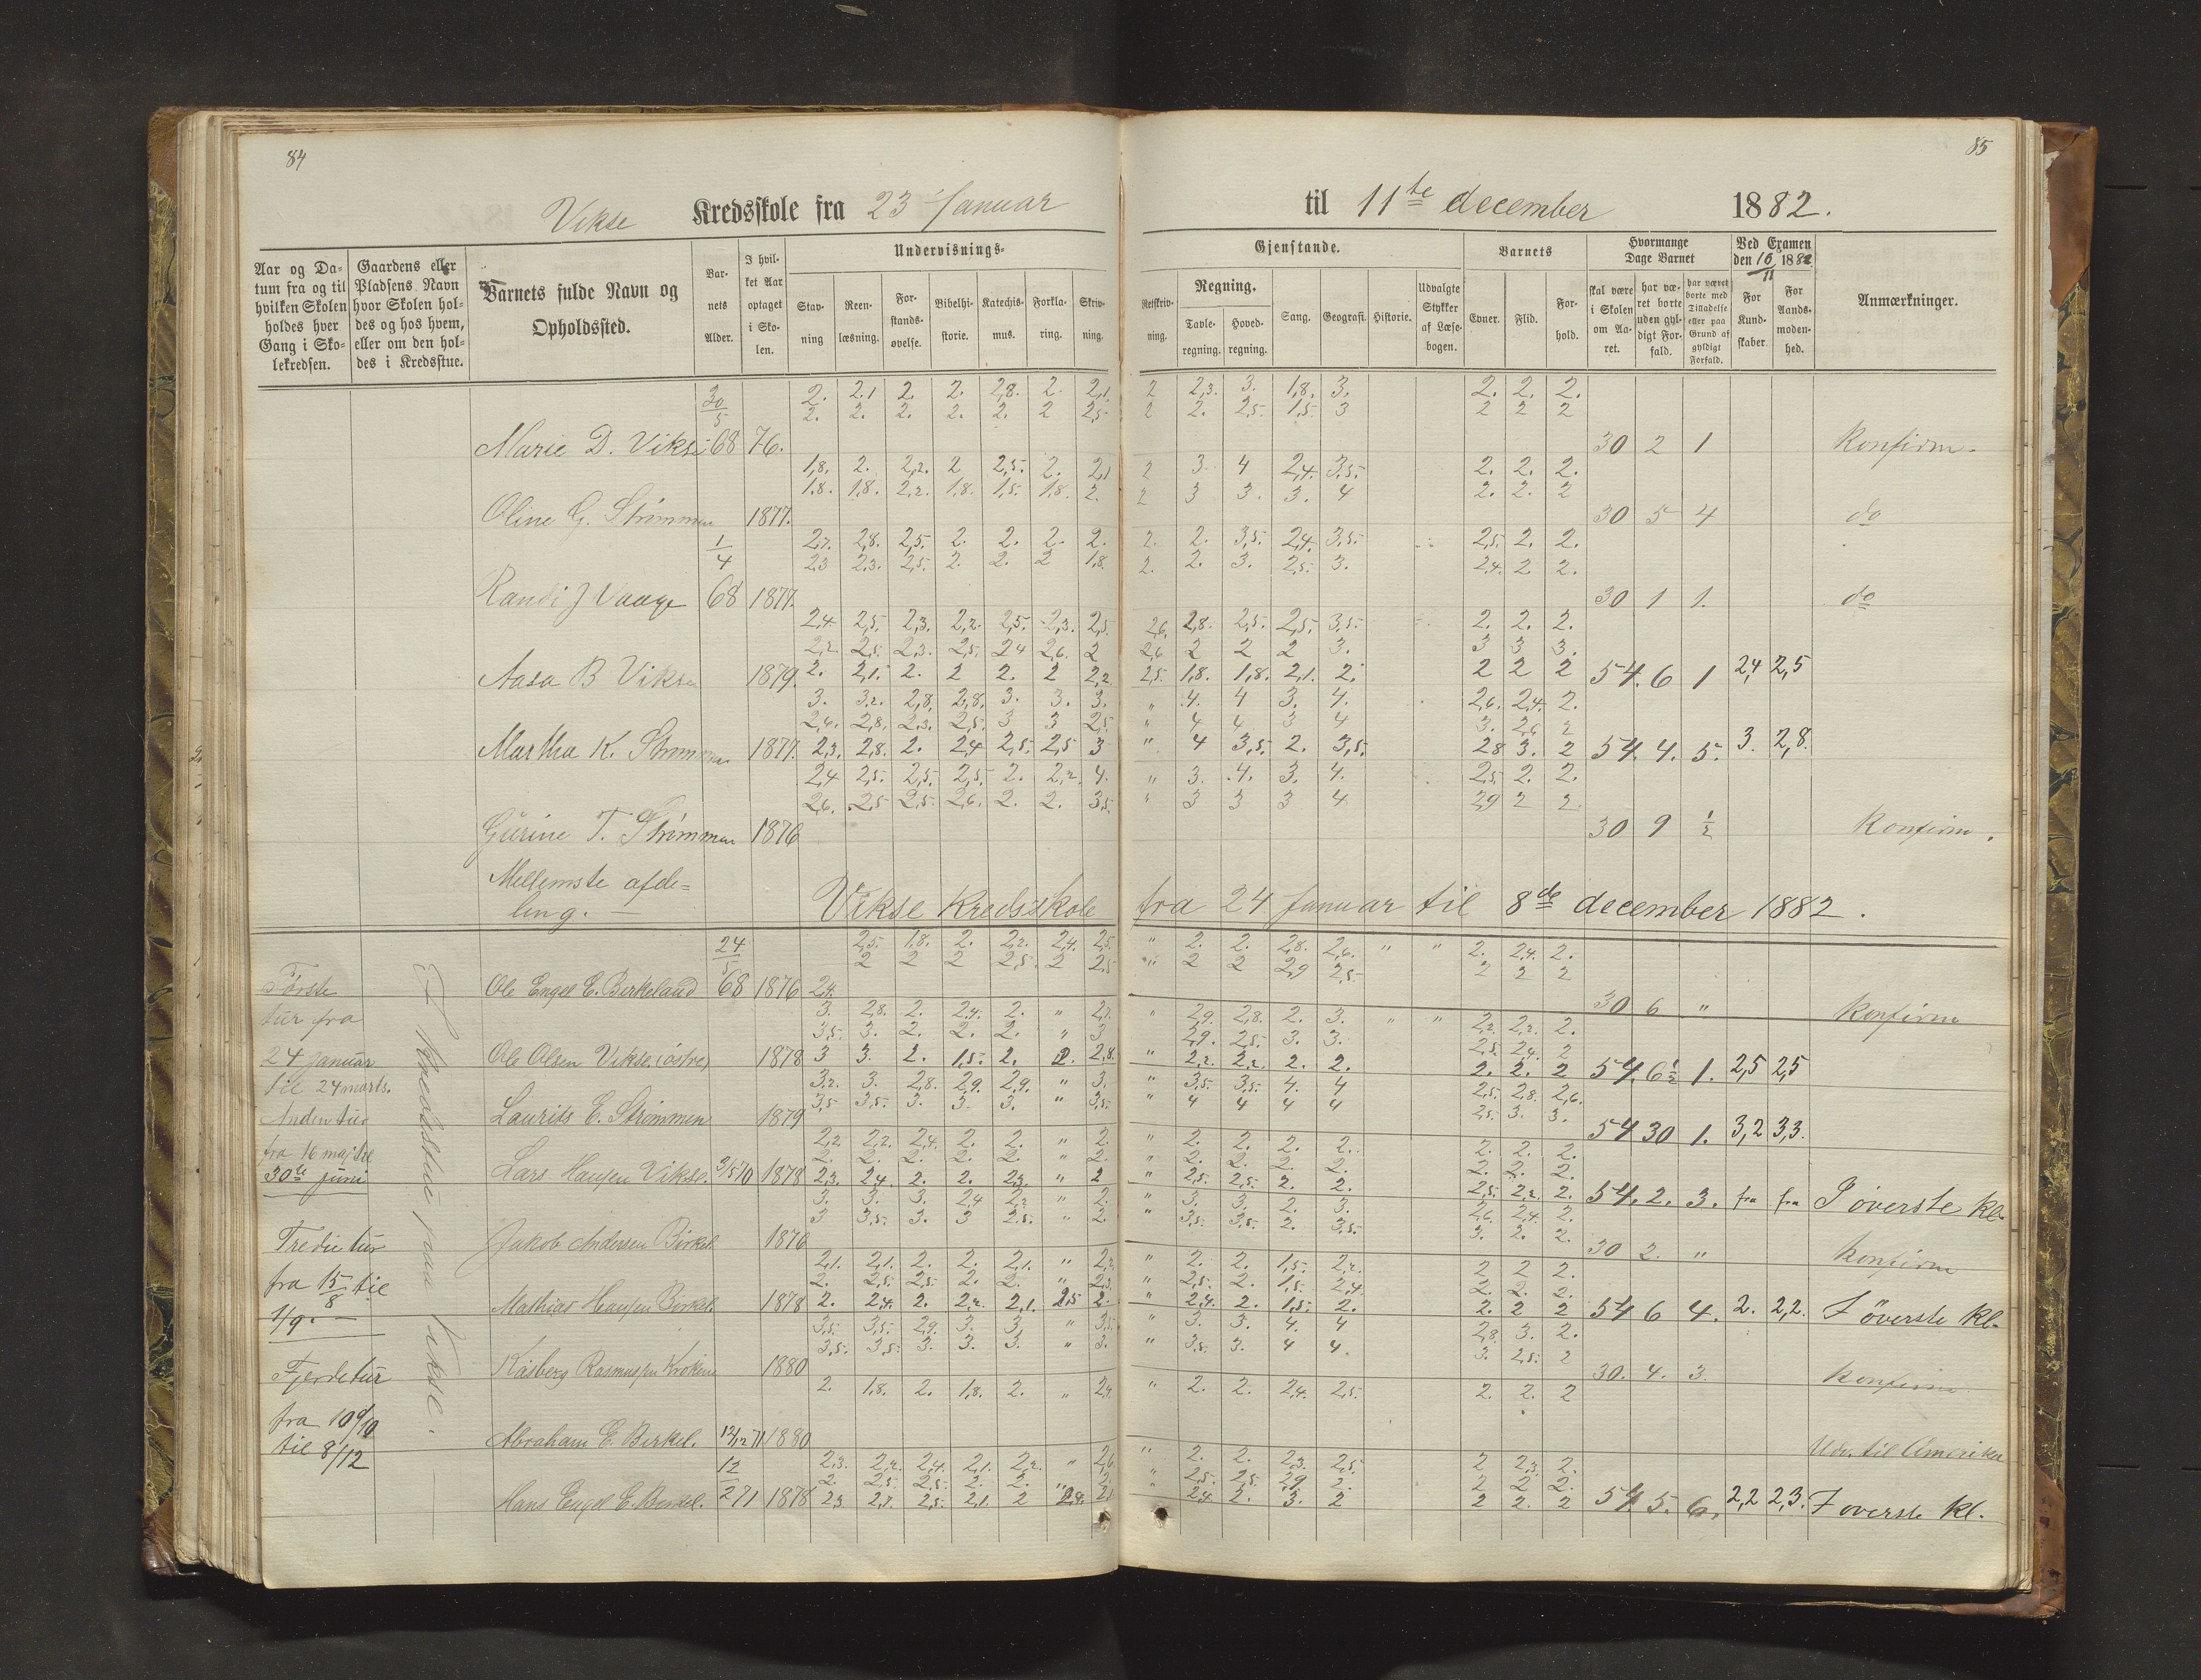 84
85
Vikse Kredsskole fra 23 Januar til 11te december 1882.
Aar og Datum fra og til hvilken Skolen holdes hver Gang i Skolekredsen.
Gaardens eller Pladsens Navn hvor Skolen holdes og hos hvem, eller om den holdes i Kredsstue.
Barnets fulde Navn og Opholdssted.
Barnets Alder.
I hvilket Aar optaget i Skolen.
Undervisnings-
Stavning
Reenlæsning.
Forstandsøvelse.
Bibelhistorie.
Katechismus.
Forklaring.
Skrivning.
Gjenstande.
Retskrivning.
Regning.
Tavleregning.
Hovedregning.
Sang.
Geografi.
Historie.
Udvalgte Stykker af Læsebogen.
Barnets
Evner.
Flid.
Forhold.
Hvormange Dage Barnet
skal være i Skolen om Aaret.
har været borte uden gyldigt Forfald.
har været borte med Tilladelse eller paa Grund af gyldigt Forfald.
Ved Examen den 16/11 1882
For Kundskaber.
For Aandsmodenhed.
Anmærkninger.
30/5 2. 2.1 2. 2. 2,8. 2. 2,1 2 2,3. 3. 1,8. 3. 2. 2. 2.
2. 2. 2. 2. 2. 2 2,5 2 2. 2,5. 1,5. 3 2 2 2
Marie D. Vikse 68 76. 30 2 1 Konfirm.
1,8. 2. 2,2. 2 2,5. 2. 2,1 2 3. 4 2,4. 3,5. 2. 2. 2.
1,8. 1,8. 2,2. 1,8. 1,5. 1,8. 2. 2 3 3. 3. 4 2. 2. 2
Oline G. Strømmen 1877. 30 5 4 do
1/4 2,7. 2,8. 2,5. 2. 2. 2. 2. 2. 2. 3,5. 2,4. 3,5. 2,5. 2. 2.
2,3 2,3. 2,5. 2. 2. 2 1,8. 2. 2. 3. 2,5. 3. 2,4. 2 2.
Randi J Vaage 68 1877. 30 1 1. do
2,4. 2,5. 2,3. 2,2. 2,5. 2,3. 2,5. 2,6. 2,8. 2,5. 2,5. 3,5. 2. 2. 2.
2,2. 2,5. 2,3. 2,5. 2,4 2,6. 2 2,6 2 2 2 3. 3 3 3.
Aasa B Vikse 1879. 2. 2,1. 2. 2 2. 2 2,2 2,5. 1,8. 1,8. 2,1. 2. 2 2 2 54. 6 1 2,4 2,5
3. 3,2. 2,8. 2,8. 3. 3. 3. " 4. 4 3. 4. 2,6. 2,4. 2.
2,6. 2,8. 2,3. 2,5. 3 3 2,5. " 4 4 3 4 3. 2,6 2
Martha K. Strømmen 1877. 2,3. 2,8. 2. 2,4 2,5. 2,5 3 " 4 3,5. 2. 3,5. 2,8 3. 2 54. 4. 5. 3. 2,8.
2,4 2,5. 2,5. 2,5. 2. 2,2. 4. " 3. 4. 3. 4. 2,5. 2. 2.
2,6. 2,5 2,5. 2,6. 2. 2. 3,5. " 3 3 3 4 2,9 2 2.
Gurine T. Strømmen 1876 30 9 1/2 Konfirm.
Mellemste afde=
ling. — Vikse Kredsskole fra 24 Januar til 8de december 1882.
24/5 2,5. 1,8. 2. 2,2. 2,4. 2,5. " 2. 2. 2,8. 2,6. " " 2. 2,4. 2.
2 2 2 2,5. 2 2,5 " 2 2 2,9 2,5. 2 2 2
Første Ole Engel E. Birkeland 68 1876 2,4. 30 6 " Konfirm
tur fra 3. 2,8. 2. 2,4. 2. " 2,7. " 2,9. 2,8. 2. 3. " " 2,2. 2,2. 2.
3,5. 3. 2. 2. 2. " 3 2,9. 2,5. 3. 3. 2,5. 2,4. 2
24 januar Ole Olsen Vikse (østre) 1878 3 3. 2. 1,5. 2. 2. 2,8. " 2,2. 2,2. 2. 2. 2. 2. 2 54. 6 1/2 1. 2,5 2,5
til 24 marts. 3,2. 3. 2,8. 2,9. 2,9. " 3. " 3,5. 3,5. 4. 4 2,5. 2,8. 2,6.
3,5 3,5. 3. 3. 3. " 3,5. " 4 4 4 4 2,5. 3. 3.
Anden tur Laurits E. Strømmen 1879 54 30 1. 3,2 3,3.
2,2 2,2. 2,4. 2. 2. " 2. " 2. 2. 2. 2. 2. 2. 2.
fra 16 maj til 2. 2. 2. 2. 2. " 2. " 2. 2. 2. 2. 2. 2. 2.
30te juni Lars Hansen Vikse. 3/5 70 1878 2,3. 2,4. 2. 2. 2,3. " 2 " 2,5. 2,5. 2. 2. 2,5. 2,2. 2. 54. 2. 3. fra fra I øverste kl.
3. 3. 3. 2,4 2,2 " 2. " 3. 3. 2. 3. 2,6. 2,4. 2.
3 3,5. 3. 3 2,5. " 2. " 3,5. 3,5. 2. 3,5. 3. 2. 2.
Tredie tur Jakob Andersen Birkel. 1876 30 2. " Konfirm
2,1. 2,1. 2. 2. 2,1. " 2,2 " 2. 2. 1,5. 2,2. 2 2 2.
fra 15/8 til 2. 2,5. 2,5. 2. 2. " 2,3. " 2,5. 2. 1,5. 2,4. 2. 2. 2.
1/9. — Mathias Hansen Birkel. 1878 2. 2,4. 2. 2,2. 2,1. 2,5 2. " 2,4. 2. 1,5. 2. 2. 2 2 54 6 4. 2. 2,2. I øverste kl.
3,5. 3,5. 2,9. 3. 3. " 3,5. " 3. 3. 4. 4 2,8. 3. 2.
3,5. 3,5. 3. 3. 3. " 3. " 3,5. 3. 4 4. 3. 2,5. 2
Fjerde tur Rasmussen 1880 30. 4. 3. Konfirm.
2. 1,8. 2. 1,8. 2. " 2,4 " 2. 2. 2,4. 2,5. 2. 2. 2
fra 10/10
til 8/12 Abraham E. Birkel. 12/12 71 1880 Udv. til Amerika
12/2 2,3. 2,2. 2,4. 2,1. 2,2. " 2,6 " 2. 2. 2,3. 2,5. 2 2,3. 2.
2. 2,5. 2,5. 2. 2. " 2. " 2,5. 2,5. 2,9 2. 2 2. 2.
Hans Engel E. Birkel. 71 1878 2,3 2,7. 2,5. 2,1. 2 2,4. 2,1 " 2,4. 2. 3. 2 2 2. 2 54 5. 6. 2,2 2,3. I øverste kl.
I Kredsstue paa Vikse.